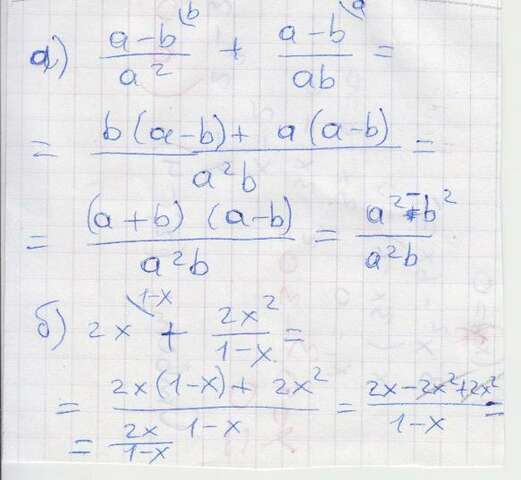 а) (a-b)/a² \b + (a-b)/ab \a =
= (b(a-b)+ a(a-b))/a²b =
= ((a+b) (a-b))/a²b = (a²-b²)/a²b
б) 2x \1-x + 2x²/(1-x) =
= (2x(1-x)+ 2x²)/(1-x) = (2x-2x²+2x²)/(1-x) =
= 2x/(1-x)